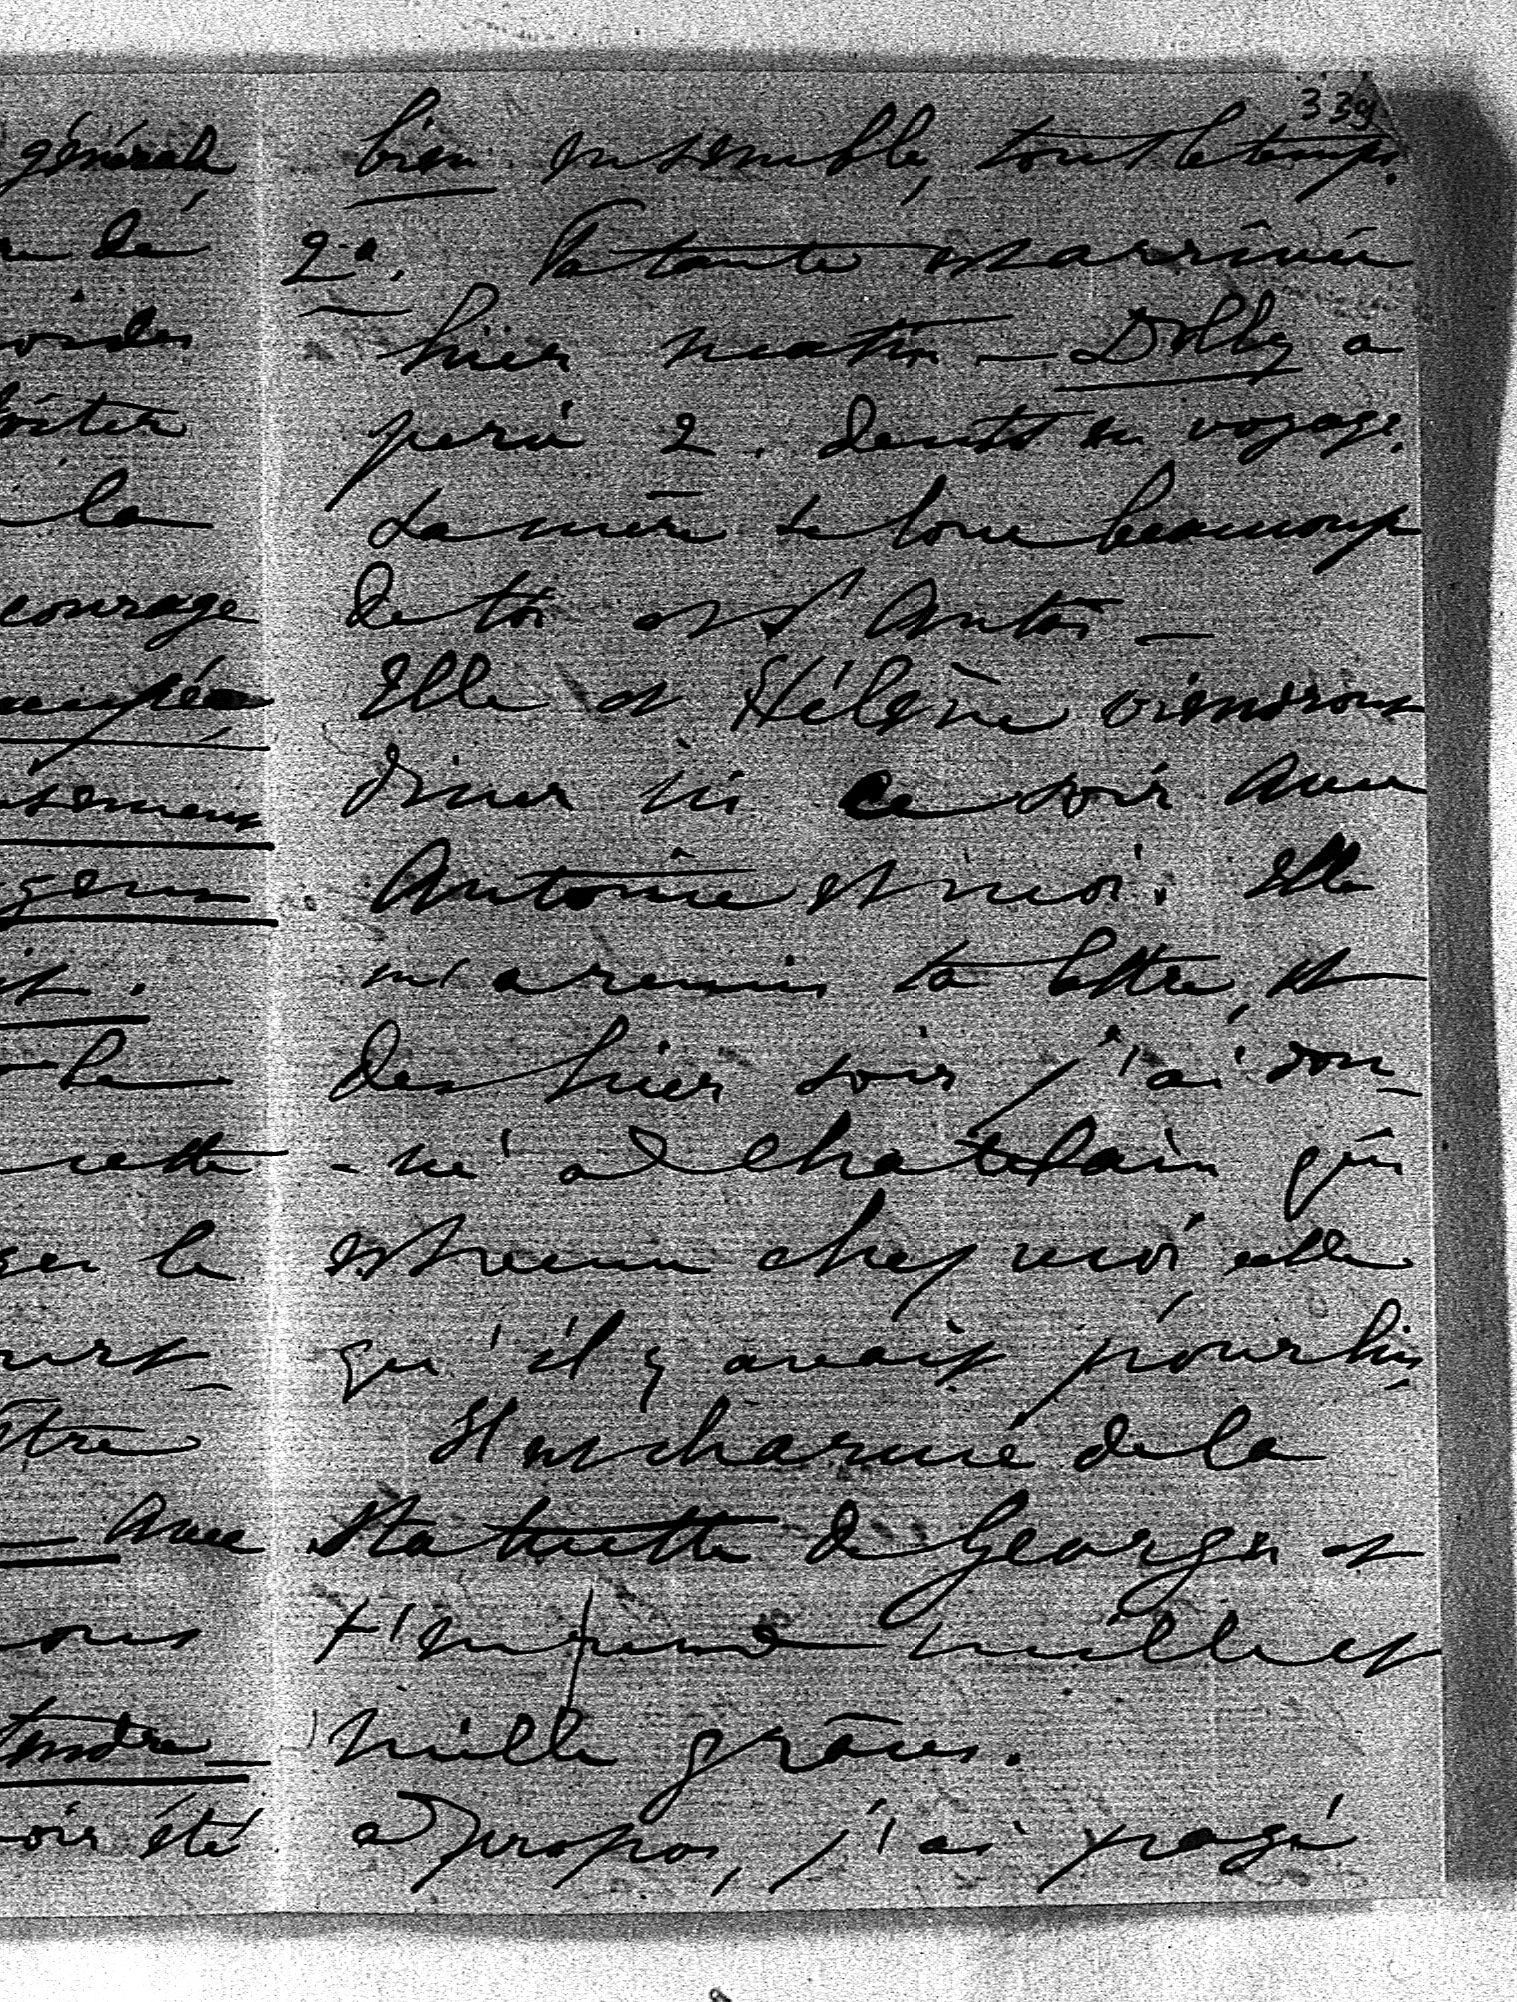 339
bien ensemble, tout le temps.
2º. Ta tante est arrivée
hier matin — Dolly a
perdu 2. dents en voyage.
Sa mère se loue beaucoup
de toi et d'Anton —
Elle et Hélène viendront
dîner ici ce soir avec
Antoine et moi. Elle
m'a remis ta lettre, et
des hier soir j'ai don-
-né à Chatelain qui
est venu chez moi celle
qu'il y avait pour lui
Il est charmé de la
Statuette de Georges et
t'en rend mille et
mille grâces.
a propos, j'ai payé
générale
de
la
courage
le
cette
le
avec
tendre
été